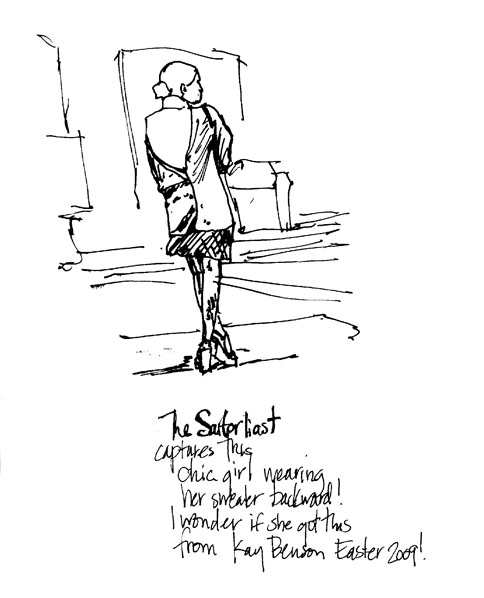 The Sartorliast
captures this
chic girl wearing
her sweater backward!
I wonder if she got this
from Kay Benson Easter 2009!